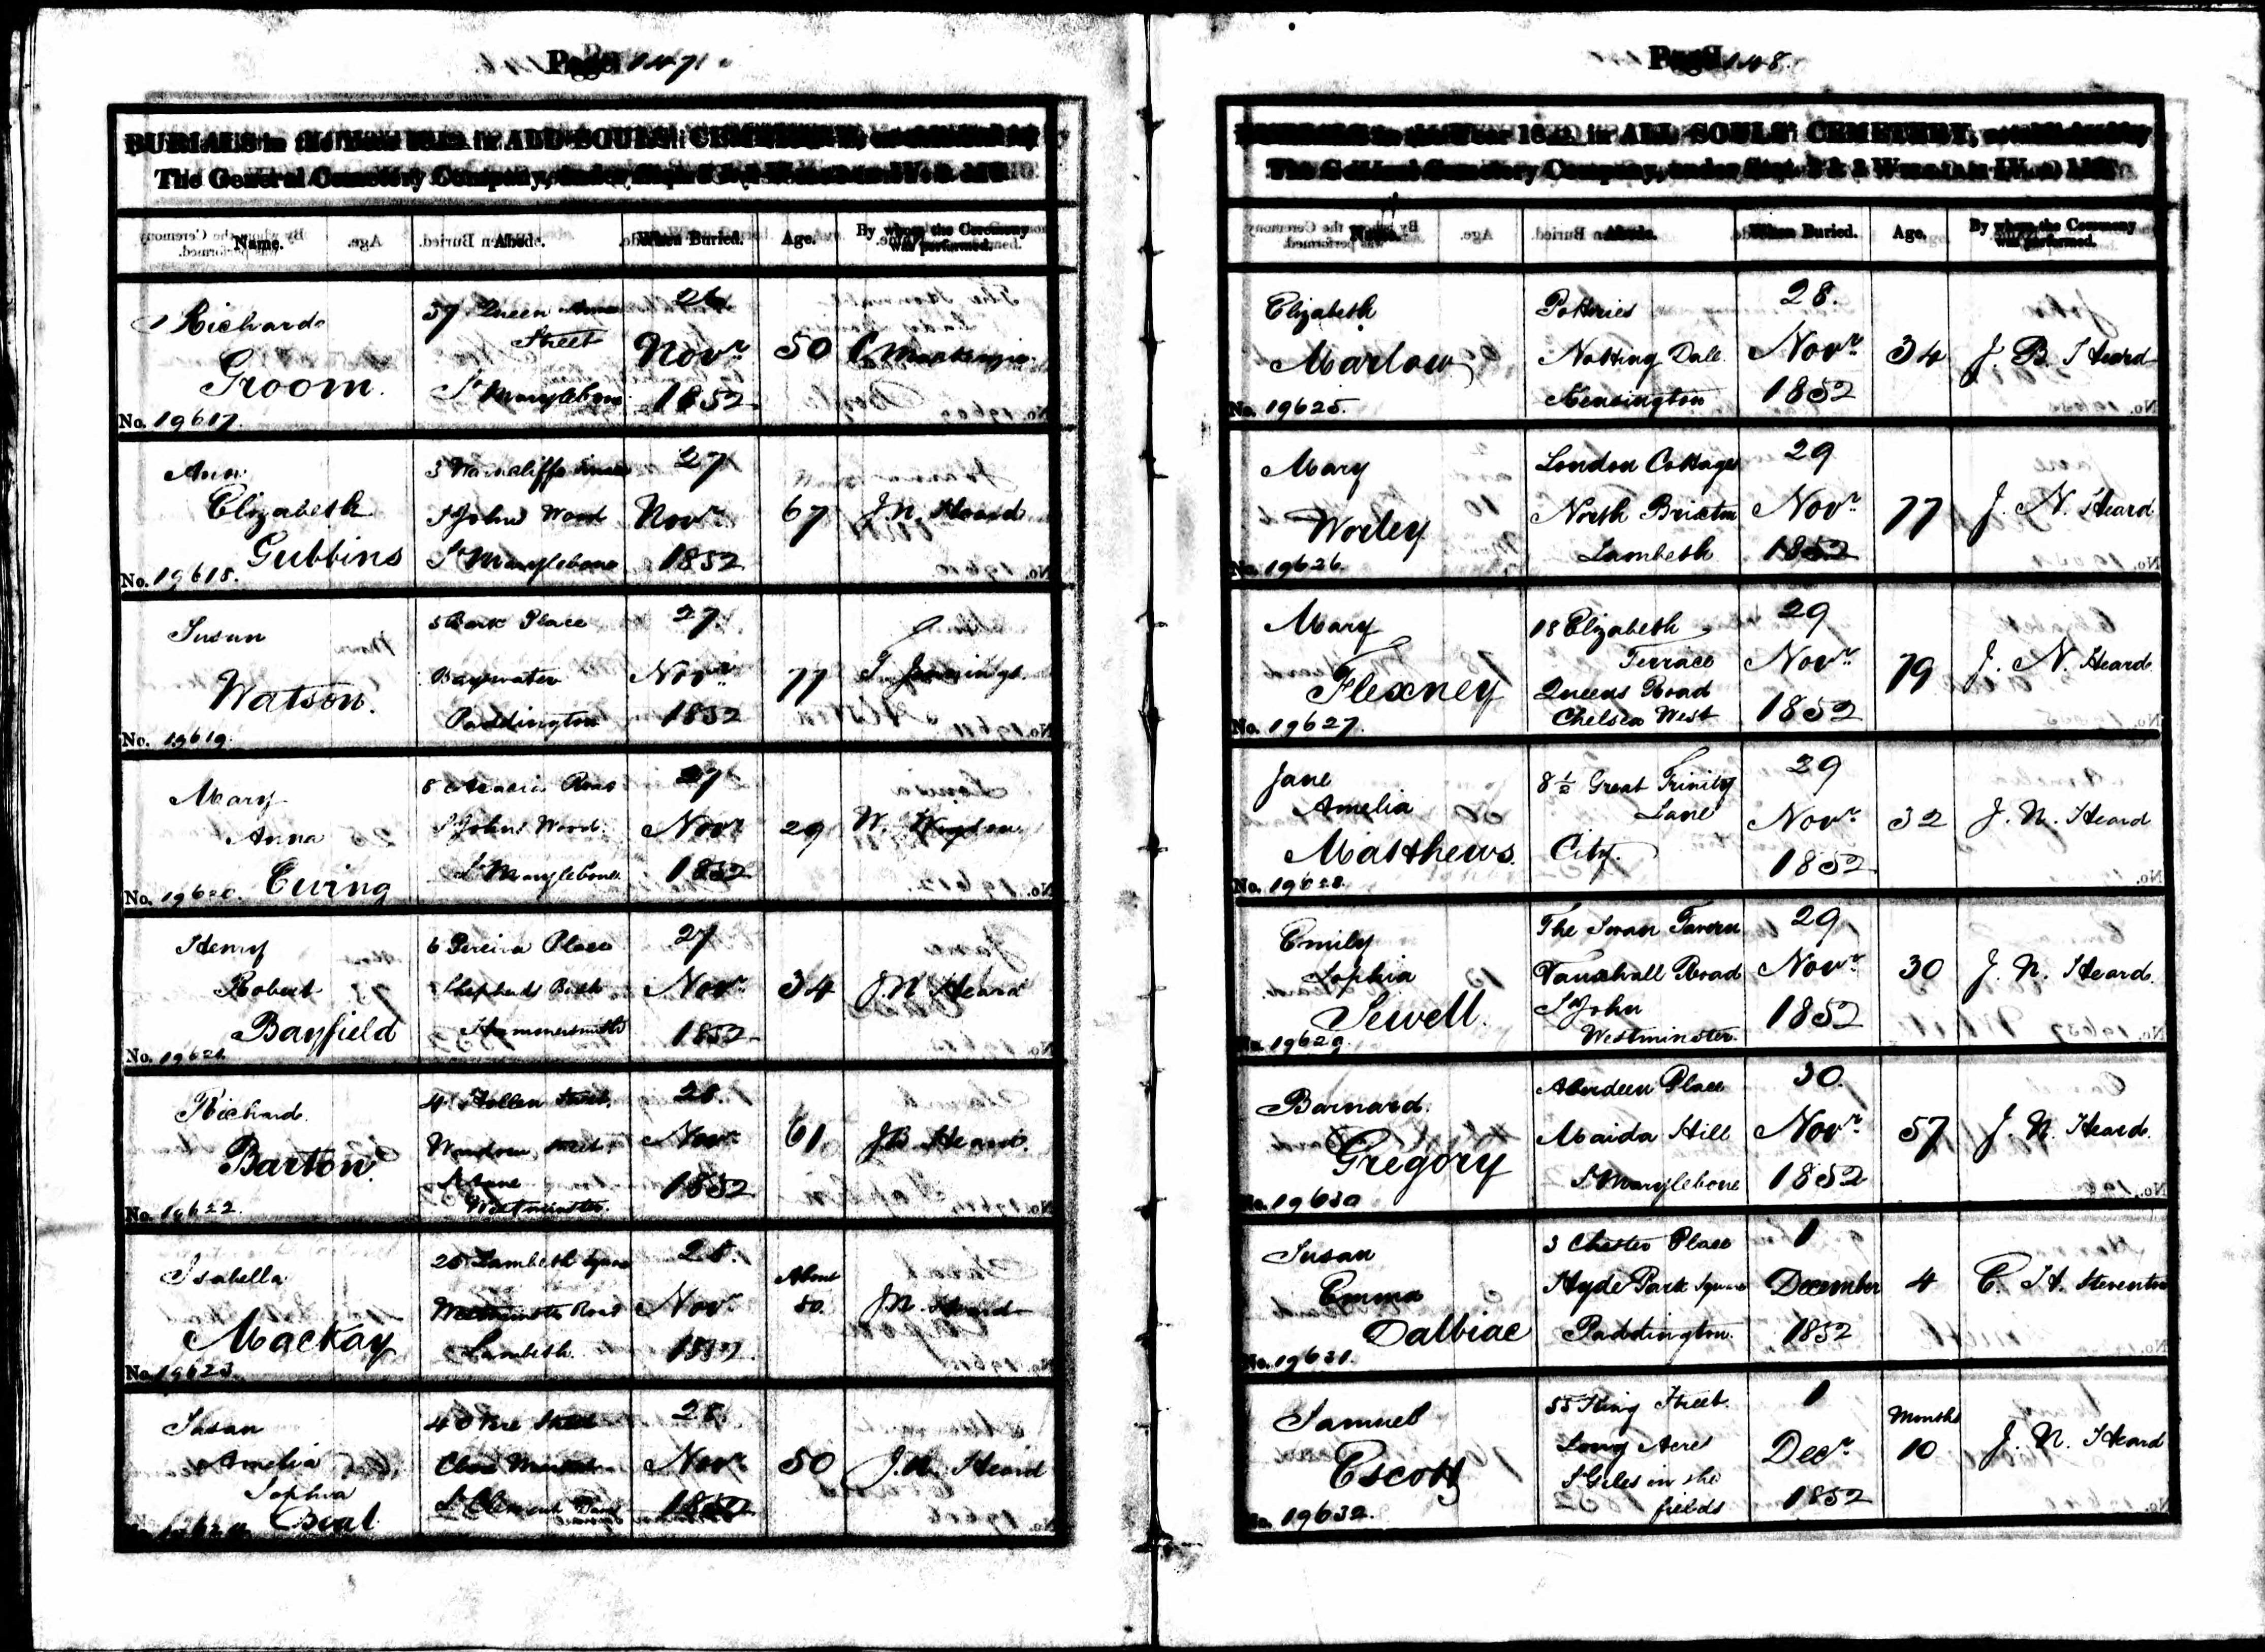 Page 147
BURIALS in the Year 1852 in ALL SOULS' CEMETERY, established by
The General Cemetery Company, under
Name. Abode. When Buried. Age. By whom the Ceremony was performed.
Richard
Groom.
No. 19617.
37 Queen Anne
Street
St Marylebone
26
Novr
1852
50
C. Mackenzie
Ann
Elizabeth
Gubbins
No. 19618.
3 Warncliffe
St Johns Wood
St Marylebone
27
Novr
1852
67
J. N. Heard
Susan
Watson.
No. 19619.
5 Bark Place
Bayswater
Paddington
27
Novr
1852
77
T. Jennings.
Mary
Anna
Ewing
No. 19620.
8 Acacia Road
St Johns Wood
St Marylebone
27
Novr
1852
29
W.
Henry
Robert
Bayfield
No. 19621
6 Pereira Place
Shepherds Bush
Hammersmith
27
Novr
1852
34
J N Heard
Richard
Barton.
No. 19622.
4 Hollen Street
Wardour Street
St Anne
Westminster.
28.
Novr
1852
61
J. B. Heard.
Isabella
Mackay
No. 19623.
25 Lambeth Square
Westminster Road
Lambeth
28.
Novr
1852.
About
50
J. N. Heard
Susan
Amelia
Sophia
Beal
No. 19624
40 Vere Street
Clare Market
St Clement Danes
28.
Novr
1852
50
J. N. Heard
Page 148.
BURIALS in the Year 1852 in ALL SOULS' CEMETERY, established by
The General Cemetery Company, under Stat. 2 & 3
Name. Abode. When Buried. Age. By whom the Ceremony was performed.
Elizabeth
Marlow
No. 19625.
Potteries
Notting Dale
Kensington
28.
Novr
1852
34
J. B. Heard
Mary
Worley
No. 19626.
London Cottages
North Brixton
Lambeth
29
Novr
1852
77
J. N. Heard
Mary
Flexney
No. 19627.
18 Elizabeth
Terrace
Queens Road
Chelsea West
29
Novr
1852
79
J. N. Heard.
Jane
Amelia
Matthews.
No. 19628.
8½ Great Trinity
Lane
City.
29
Novr
1852
32
J. N. Heard
Emily
Sophia
Sewell.
No. 19629.
The Swan Tavern
Vauxhall Road
St John
Westminster.
29
Novr
1852
30
J. N. Heard.
Barnard.
Gregory
No. 19630
Aberdeen Place
Maida Hill
St Marylebone
30.
Novr
1852
57
J. N. Heard.
Susan
Emma
Dalbiac
No. 19631.
3 Chester Place
Hyde Park Square
Paddington.
1
December
1852
4
C. H. Steventon
Samuel
Escott
No. 19632.
55 King Street.
Long Acre
St Giles in the
fields
1
Decr
1852
Months
10
J. N. Heard